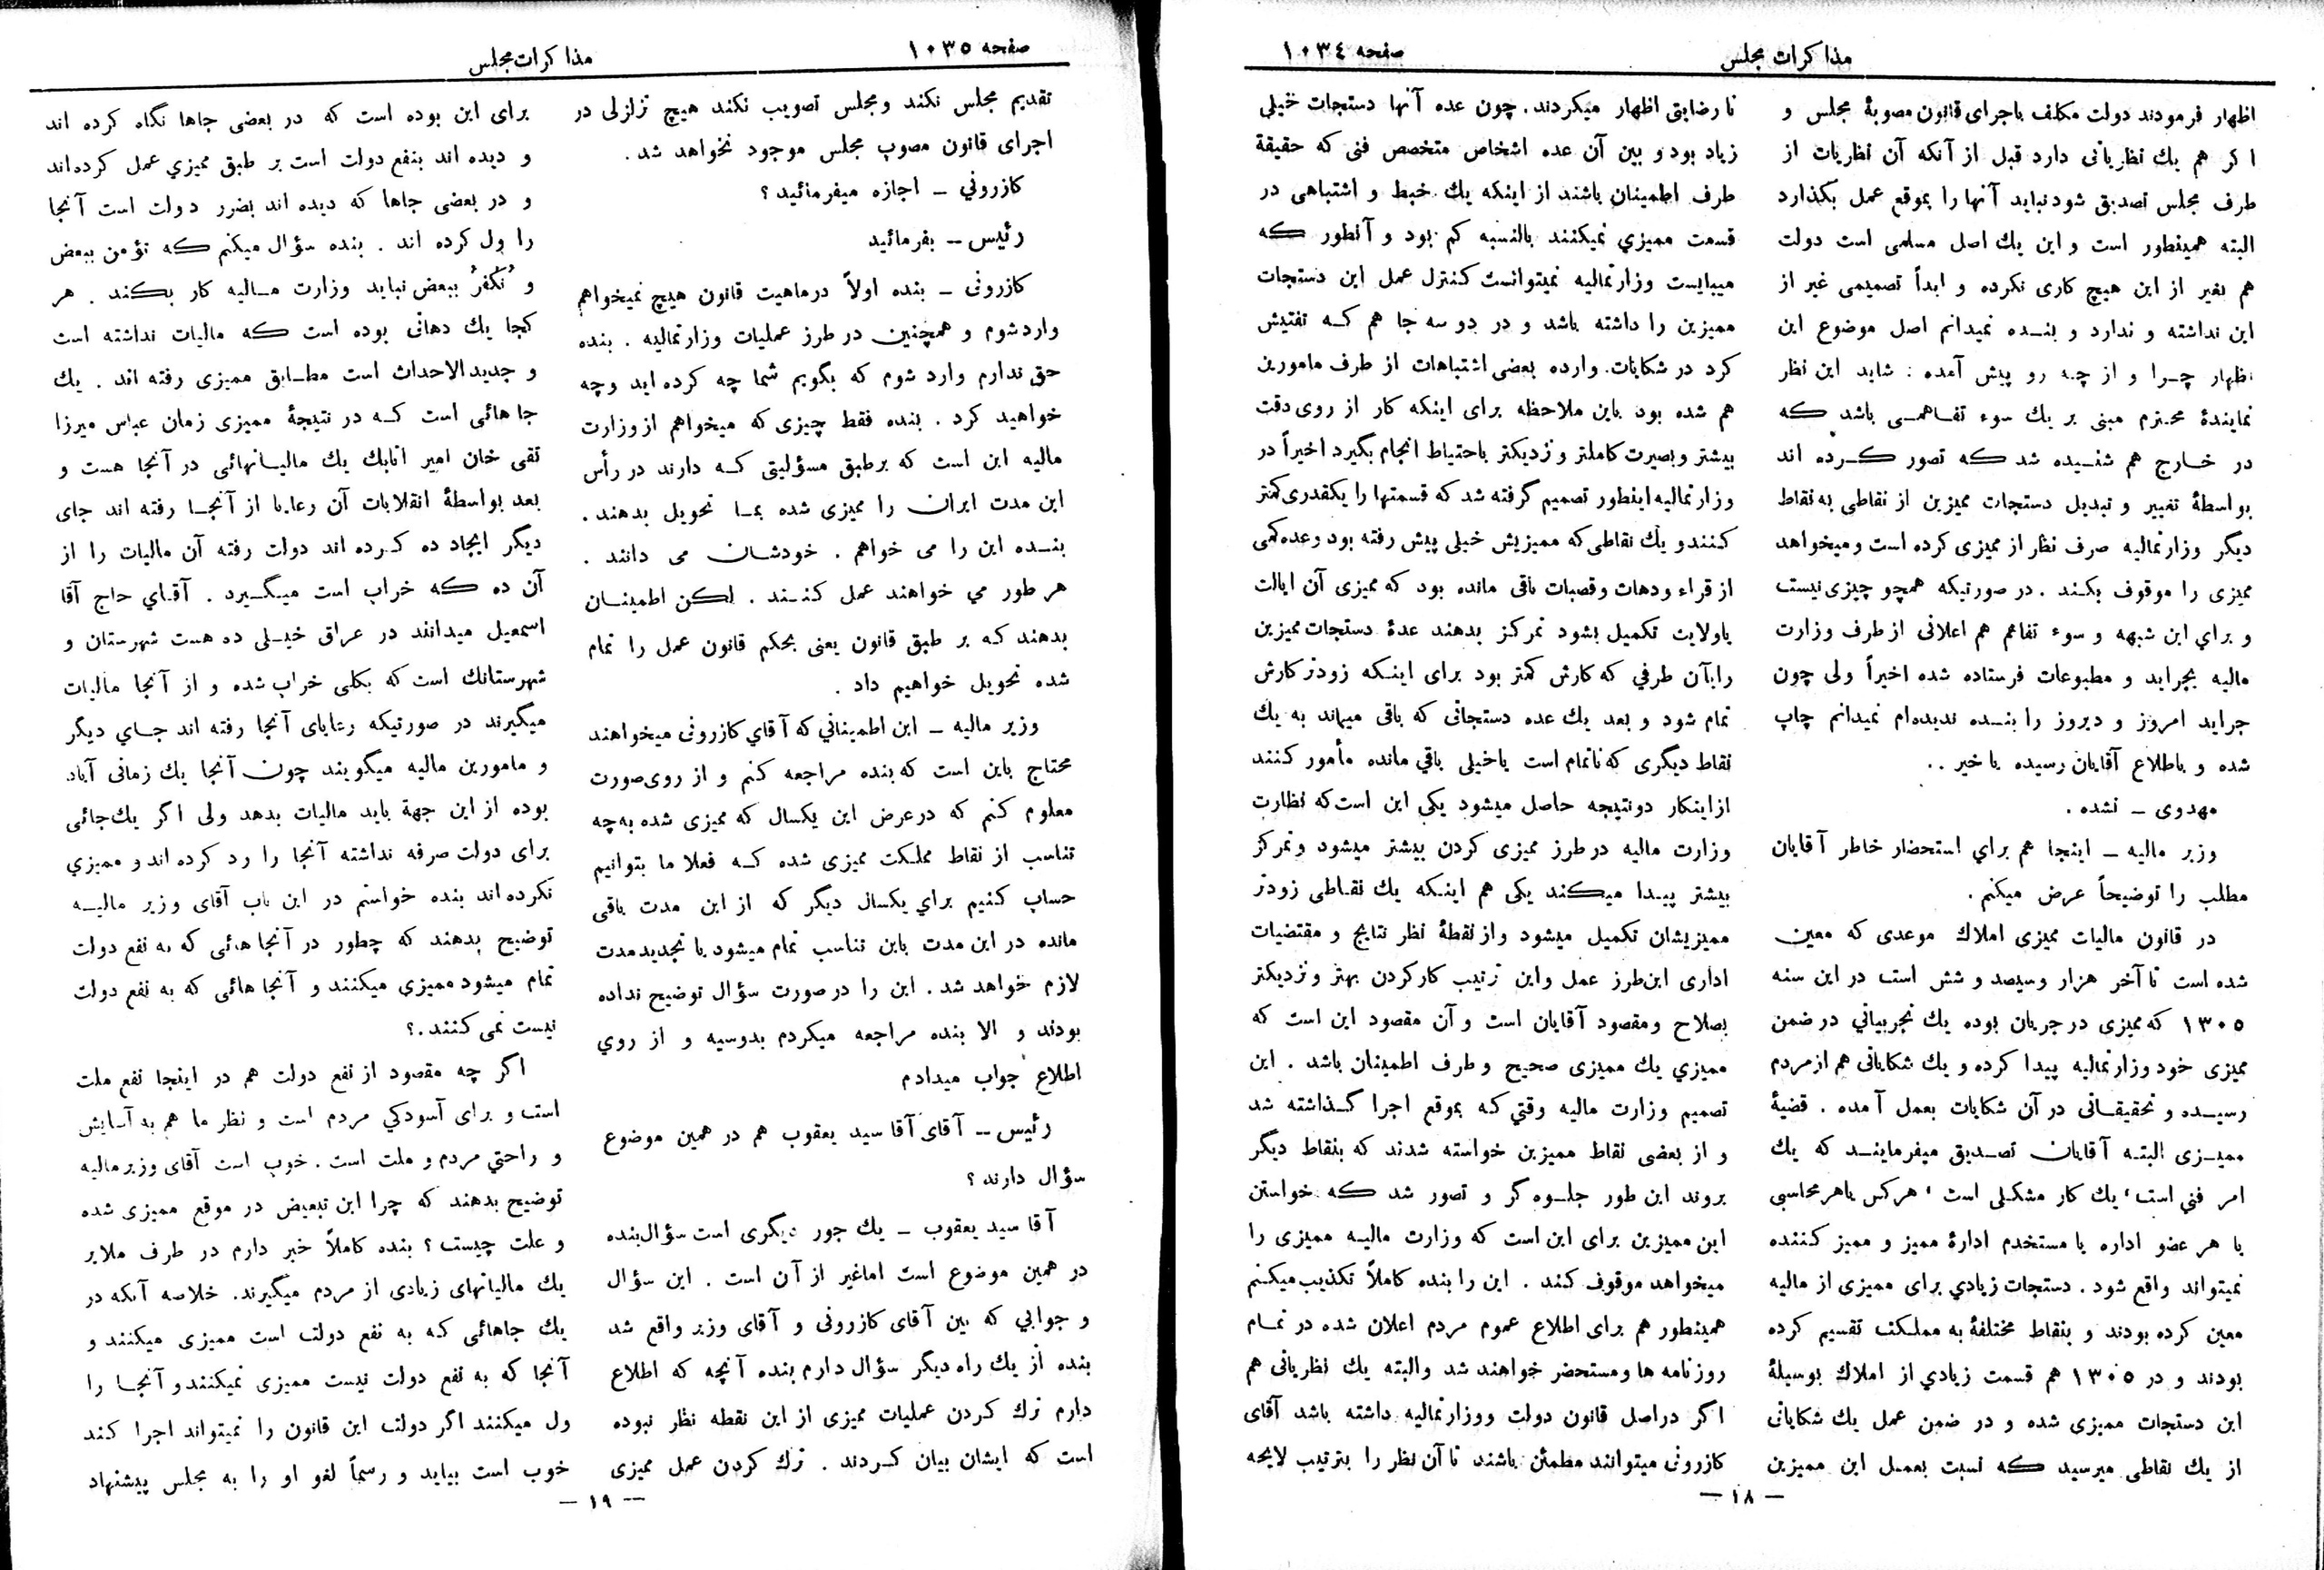 مذاکرات مجلس
صفحه ۱۰۳٤
اظهار فرمودند دولت مکلف باجرای قانون مصوبهٔ مجلس و
اگر هم یك نظریاتی دارد قبل از آنکه آن نظریات از
طرف مجلس تصدیق شود نباید آنها را بموقع عمل بگذارد
البته همینطور است و این یك اصل مسلمی است دولت
هم بغیر از این هیچ کاری نکرده و ابداً تصمیمی غیر از
این نداشته و ندارد و بنده نمیدانم اصل موضوع این
اظهار چرا و از چه رو پیش آمده : شاید این نظر
نمایندهٔ محترم مبنی بر یك سوء تفاهمی باشد که
در خارج هم شنیده شد که تصور کرده اند
بواسطهٔ تغییر و تبدیل دستجات ممیزین از نقاطی به نقاط
دیگر وزارتمالیه صرف نظر از ممیزی کرده است و میخواهد
ممیزی را موقوف بکند . در صورتیکه همچو چیزی نیست
و برای این شبهه و سوء تفاهم هم اعلانی از طرف وزارت
مالیه بجراید و مطبوعات فرستاده شده اخیراً ولی چون
جراید امروز و دیروز را بنده ندیده‌ام نمیدانم چاپ
شده و باطلاع آقایان رسیده یا خیر ..
مهدوی ـ نشده .
وزیر مالیه ـ اینجا هم برای استحضار خاطر آقایان
مطلب را توضیحاً عرض میکنم .
در قانون مالیات ممیزی املاك موعدی که معین
شده است تا آخر هزار و سیصد و شش است در این سنه
۱۳۰۵ که ممیزی در جریان بوده یك تجربیاتی در ضمن
ممیزی خود وزارتمالیه پیدا کرده و یك شکایاتی هم از مردم
رسیده و تحقیقاتی در آن شکایات بعمل آمده . قضیهٔ
ممیزی البته آقایان تصدیق میفرمایند که یك
امر فنی است، یك کار مشکلی است ، هرکس یا هر محاسبی
یا هر عضو اداره یا مستخدم ادارهٔ ممیز و ممیز کننده
نمیتواند واقع شود . دستجات زیادی برای ممیزی از مالیه
معین کرده بودند و بنقاط مختلفهٔ به مملکت تقسیم کرده
بودند و در ۱۳۰۵ هم قسمت زیادی از املاك بوسیلهٔ
این دستجات ممیزی شده و در ضمن عمل یك شکایاتی
از یك نقاطی میرسید که نسبت بعمل این ممیزین
نارضایتی اظهار میکردند. چون عده آنها دستجات خیلی
زیاد بود و بین آن عده اشخاص متخصص فنی که حقیقة
طرف اطمینان باشند از اینکه یك خبط و اشتباهی در
قسمت ممیزی نمیکنند بالنسبه کم بود و آنطور که
میبایست وزارتمالیه نمیتوانست کنترل عمل این دستجات
ممیزین را داشته باشد و در دو سه جا هم که تفتیش
کرد در شکایات. وارده بعضی اشتباهات از طرف مامورین
هم شده بود باین ملاحظه برای اینکه کار از روی دقت
بیشتر و بصیرت کاملتر و نزدیکتر باحتیاط انجام بگیرد اخیراً در
وزارتمالیه اینطور تصمیم گرفته شد که قسمتها را یکقدری کمتر
کنند و یك نقاطی که ممیزیش خیلی پیش رفته بود و عده کمی
از قراء و دهات و قصبات باقی مانده بود که ممیزی آن ایالت
یا ولایت تکمیل بشود تمرکز بدهند عدهٔ دستجات ممیزین
را بآن طرفی که کارش کمتر بود برای اینکه زودتر کارش
تمام شود و بعد یك عده دستجاتی که باقی میماند به یك
نقاط دیگری که ناتمام است یا خیلی باقی مانده مأمور کنند
از اینکار دو نتیجه حاصل میشود یکی این است که نظارت
وزارت مالیه در طرز ممیزی کردن بیشتر میشود و تمرکز
بیشتر پیدا میکند یکی هم اینکه یك نقاطی زودتر
ممیزیشان تکمیل میشود و از نقطهٔ نظر نتایج و مقتضیات
اداری این طرز عمل و این ترتیب کار کردن بهتر و نزدیکتر
بصلاح و مقصود آقایان است و آن مقصود این است که
ممیزی یك ممیزی صحیح و طرف اطمینان باشد . این
تصمیم وزارت مالیه وقتی که بموقع اجرا گذاشته شد
و از بعضی نقاط ممیزین خواسته شدند که بنقاط دیگر
بروند این طور جلوه گر و تصور شد که خواستن
این ممیزین برای این است که وزارت مالیه ممیزی را
میخواهد موقوف کند . این را بنده کاملاً تکذیب میکنم
همینطور هم برای اطلاع عموم مردم اعلان شده در تمام
روزنامه ها و مستحضر خواهند شد والبته یك نظریاتی هم
اگر در اصل قانون دولت و وزارتمالیه داشته باشد آقای
کازرونی میتوانند مطمئن باشند تا آن نظر را بترتیب لایحه
— ۱۸ —
صفحه ۱۰۳۵
مذاکرات مجلس
تقدیم مجلس نکند و مجلس تصویب نکند هیچ تزلزلی در
اجرای قانون مصوب مجلس موجود نخواهد شد .
کازرونی ـ اجازه میفرمائید ؟
رئیس ـ بفرمائید
کازرونی ـ بنده اولاً در ماهیت قانون هیچ نمیخواهم
وارد شوم و همچنین در طرز عملیات وزارتمالیه . بنده
حق ندارم وارد شوم که بگویم شما چه کرده اید و چه
خواهید کرد . بنده فقط چیزی که میخواهم از وزارت
مالیه این است که بر طبق مسؤلیتی که دارند در رأس
این مدت ایران را ممیزی شده بما تحویل بدهند .
بنده این را می خواهم . خودشان می دانند .
هر طور می خواهند عمل کنند . لکن اطمینان
بدهند که بر طبق قانون یعنی بحکم قانون عمل را تمام
شده تحویل خواهیم داد .
وزیر مالیه ـ این اطمینانی که آقای کازرونی میخواهند
محتاج باین است که بنده مراجعه کنم و از روی صورت
معلوم کنم که در عرض این یکسال که ممیزی شده به چه
تناسب از نقاط مملکت ممیزی شده که فعلا ما بتوانیم
حساب کنیم برای یکسال دیگر که از این مدت باقی
مانده در این مدت باین تناسب تمام میشود یا تجدید مدت
لازم خواهد شد . این را در صورت سؤال توضیح نداده
بودند و الا بنده مراجعه میکردم بدوسیه و از روی
اطلاع جواب میدادم
رئیس ـ آقای آقا سید یعقوب هم در همین موضوع
سؤال دارند ؟
آقا سید یعقوب ـ یك جور دیگری است سؤال بنده
در همین موضوع است اما غیر از آن است . این سؤال
و جوابی که بین آقای کازرونی و آقای وزیر واقع شد
بنده از یك راه دیگر سؤال دارم بنده آنچه که اطلاع
دارم ترك کردن عملیات ممیزی از این نقطه نظر نبوده
است که ایشان بیان کردند . ترك کردن عمل ممیزی
برای این بوده است که در بعضی جاها نگاه کرده اند
و دیده اند بنفع دولت است بر طبق ممیزی عمل کرده‌اند
و در بعضی جاها که دیده اند بضرر دولت است آنجا
را ول کرده اند . بنده سؤال میکنم که نؤمن ببعض
و نُکفرُ ببعض نباید وزارت مالیه کار بکند . هر
کجا یك دهاتی بوده است که مالیات نداشته است
و جدید الاحداث است مطابق ممیزی رفته اند . یك
جا هائی است که در نتیجهٔ ممیزی زمان عباس میرزا
تقی خان امیر اتابك یك مالیاتهائی در آنجا هست و
بعد بواسطهٔ انقلابات آن رعایا از آنجا رفته اند جای
دیگر ایجاد ده کرده اند دولت رفته آن مالیات را از
آن ده که خراب است میگیرد . آقای حاج آقا
اسمعیل میدانند در عراق خیلی ده هست شهرستان و
شهرستانك است که بکلی خراب شده و از آنجا مالیات
میگیرند در صورتیکه رعایای آنجا رفته اند جای دیگر
و مامورین مالیه میگویند چون آنجا یك زمانی آباد
بوده از این جهة باید مالیات بدهد ولی اگر یك جائی
برای دولت صرفه نداشته آنجا را رد کرده اند و ممیزی
نکرده اند بنده خواستم در این باب آقای وزیر مالیه
توضیح بدهند که چطور در آنجا هائی که به نفع دولت
تمام میشود ممیزی میکنند و آنجا هائی که به نفع دولت
نیست نمی کنند .؟
اگر چه مقصود از نفع دولت هم در اینجا نفع ملت
است و برای آسودگی مردم است و نظر ما هم به آسایش
و راحتی مردم و ملت است . خوب است آقای وزیر مالیه
توضیح بدهند که چرا این تبعیض در موقع ممیزی شده
و علت چیست ؟ بنده کاملاً خبر دارم در طرف ملایر
یك مالیاتهای زیادی از مردم میگیرند. خلاصه آنکه در
یك جاهائی که به نفع دولت است ممیزی میکنند و
آنجا که به نفع دولت نیست ممیزی نمیکنند و آنجا را
ول میکنند اگر دولت این قانون را نمیتواند اجرا کند
خوب است بیاید و رسماً لغو او را به مجلس پیشنهاد
— ۱۹ —